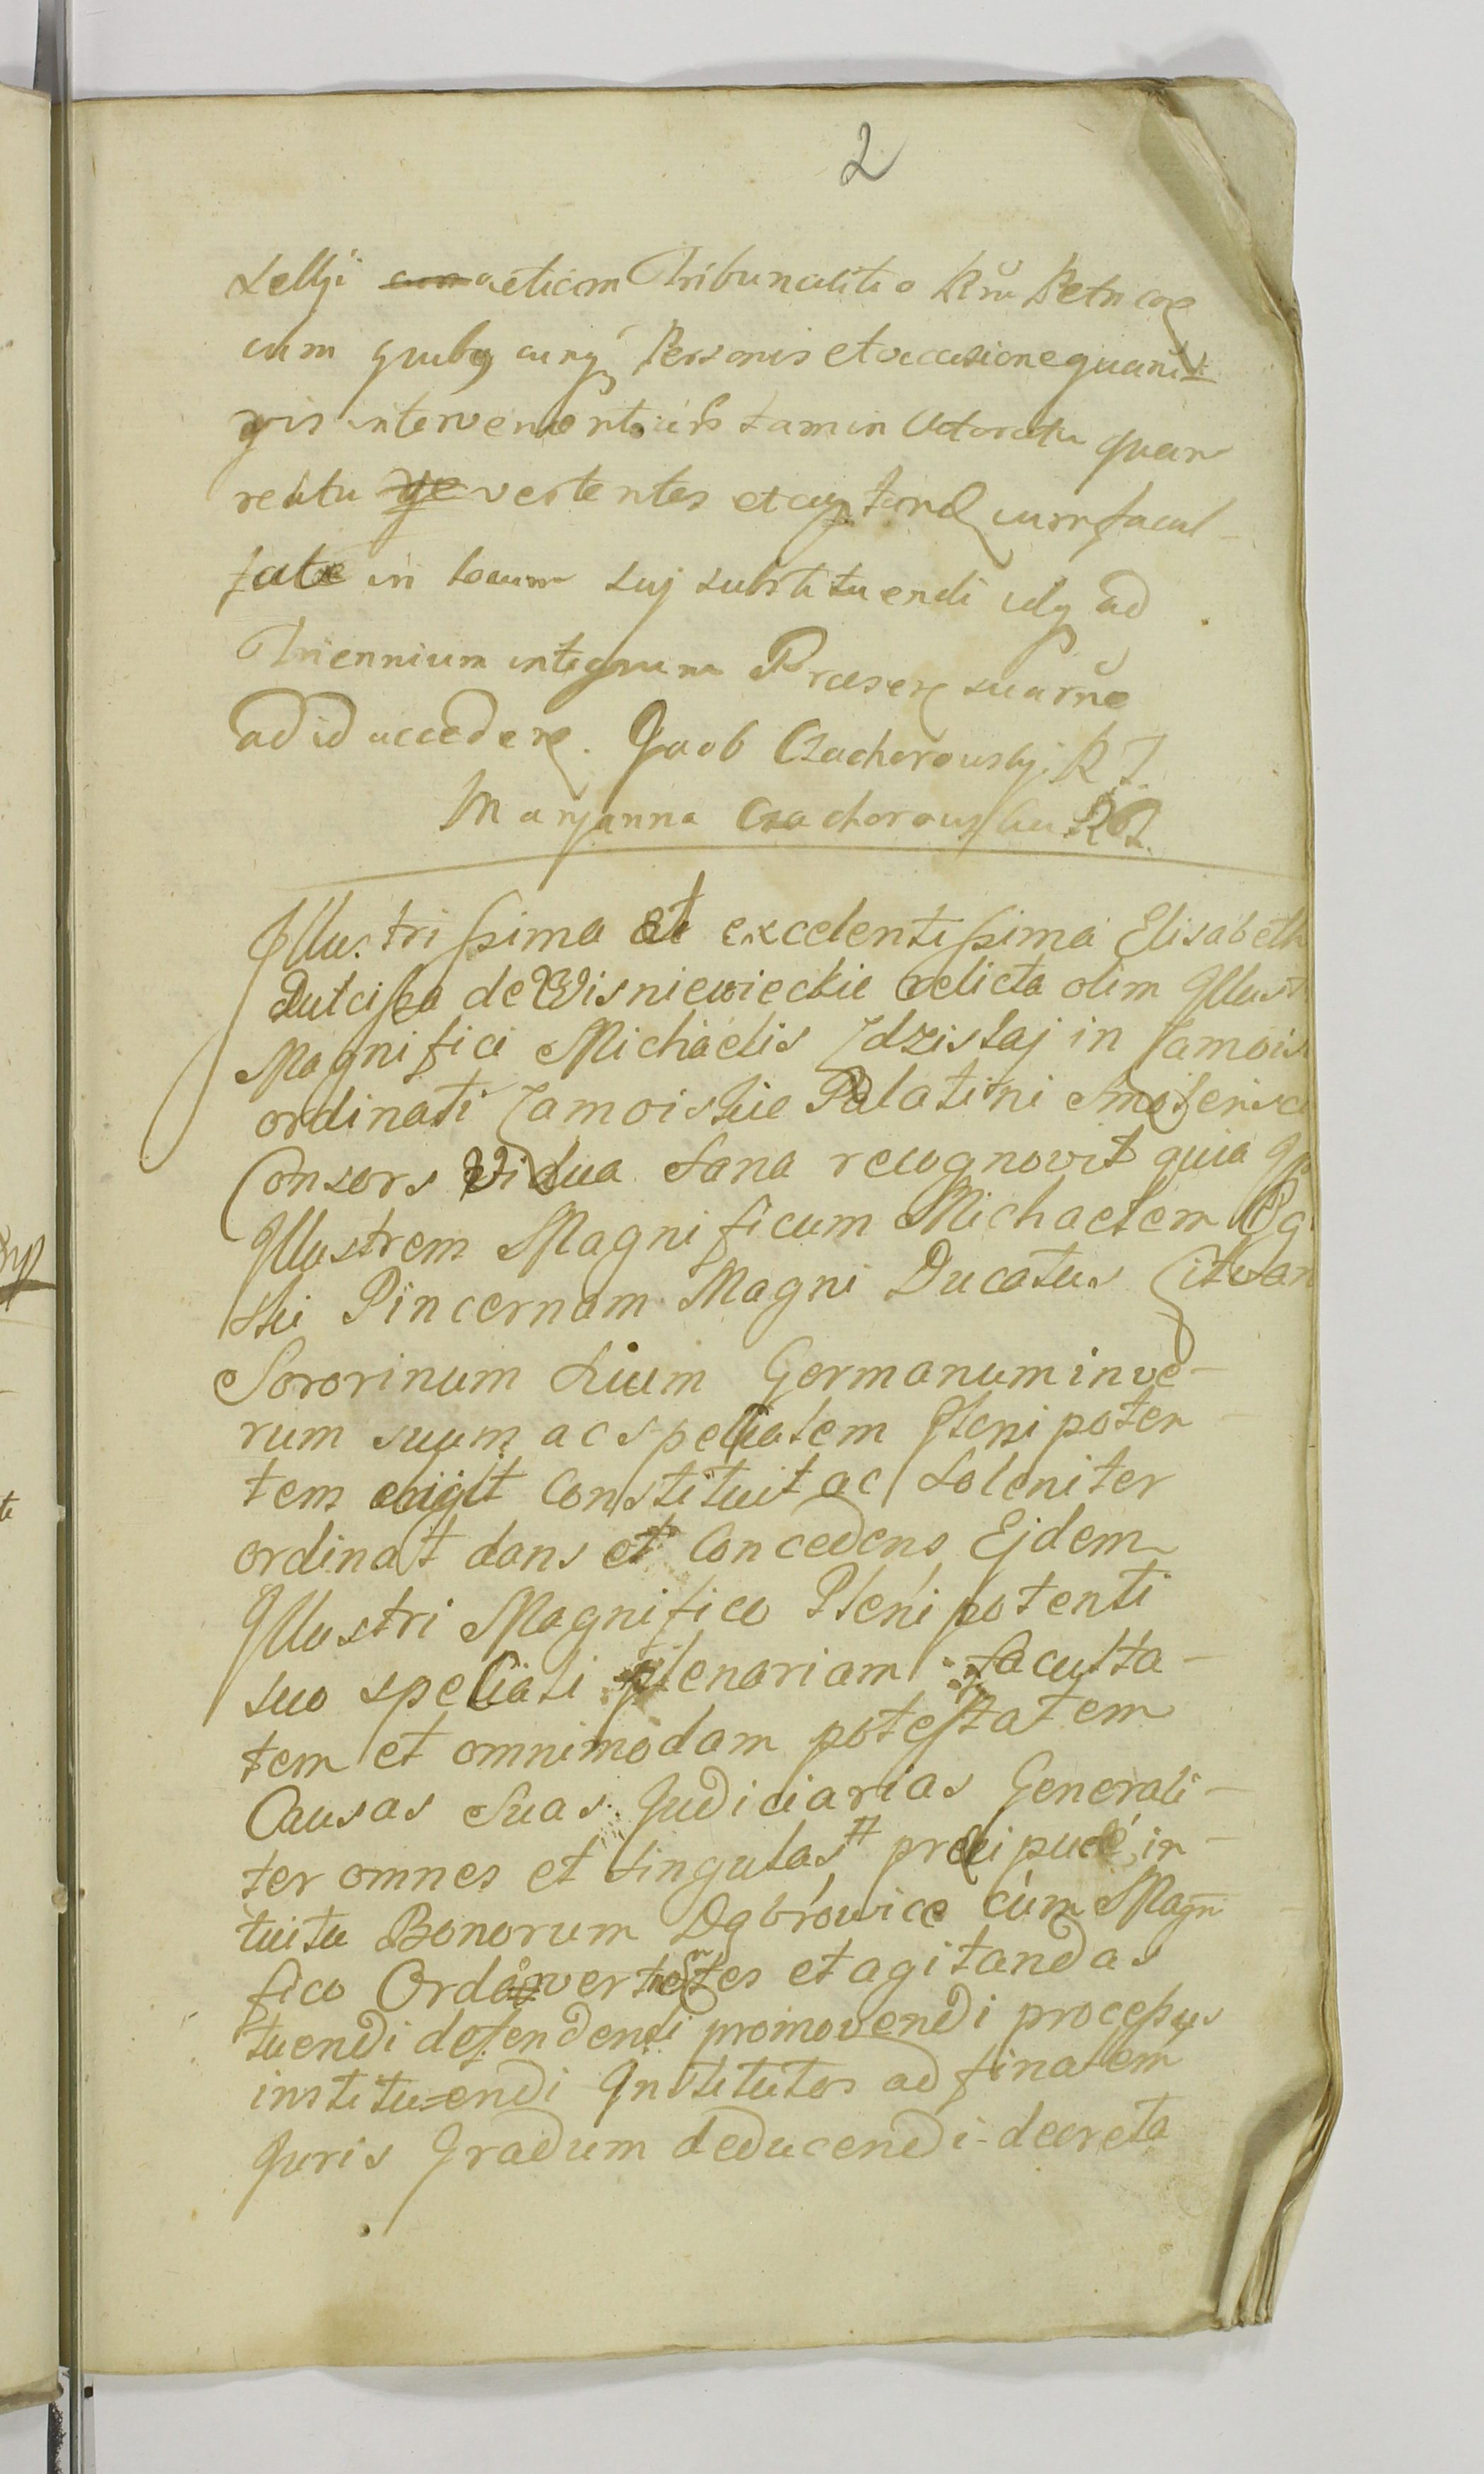 2
cum quibq cunq Personis et occasione quavis
intervenientibus tam in Actoratu quam
reatu vertentes et cum facul-
tate in locum sui substituendi usq ad
Triennium integrum
ad id accedere. Jacob Czachorowsky
Maryanna Czachorowska
Jllustrissima et excelentissima Elisabeth
Ducissa de Wisniewieckie relicta olim Jllust
Magnifici Michaelis Zdzislaj in Zamois
ordinati Zamoiskie Palatini Smolensc
Consors Vidua Sana recognovit quia Jp
Jllustrem Magnificum Michaelem Og
ski Pincernam Magni Ducatus Litvan
Sororinum suum Germanum in ve-
rum suum ac specialem Plenipoten-
tem eligit Constituit ac soleniter
ordinat dans et Concedens Ejdem
Jllustri Magnifico Plenipotenti
suo speciali plenariam faculta-
tem et omnimodam potestatem
Causas Suas Judiciarias Generali-
ter omnes et singulas # precipué in-
tuitu Bonorum Dąbrowice cum Magni
fico Ord vertentes et agitandas
tuendi defendendi promovendi processus
instituendi Jnstitutos ad finalem
Juris Gradum deducendi decreta